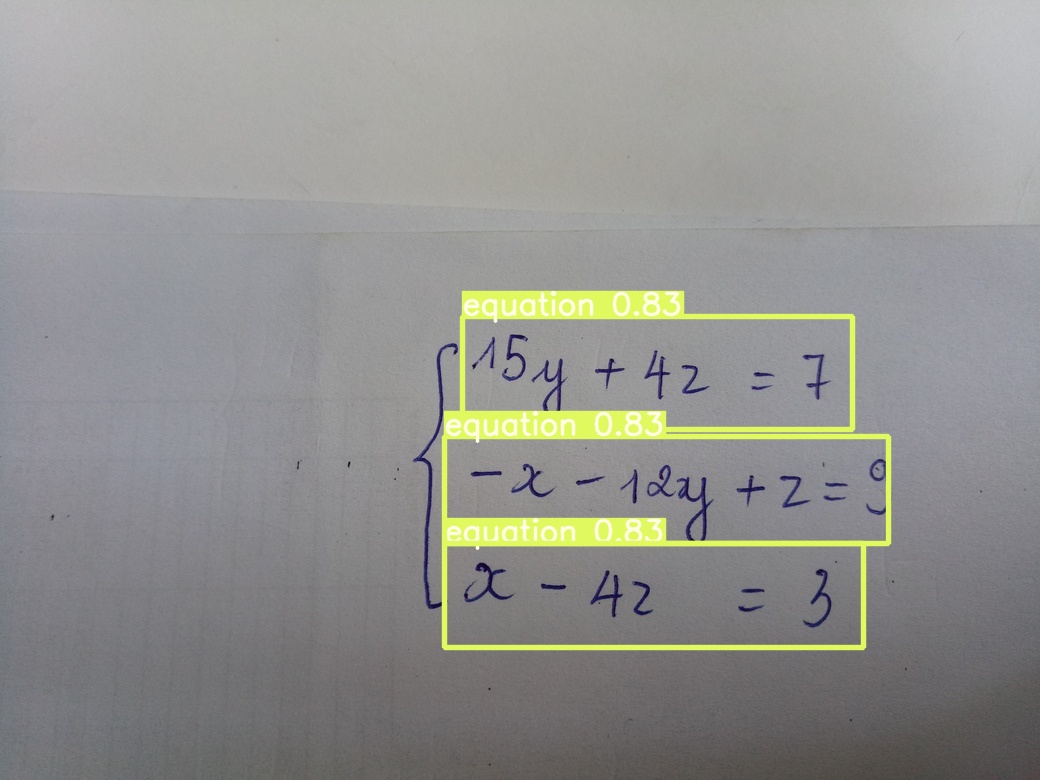 equation 0.83
15y + 4z = 7
equation 0.83
-x - 12y + z = 9
equation 0.83
x - 4z = 3